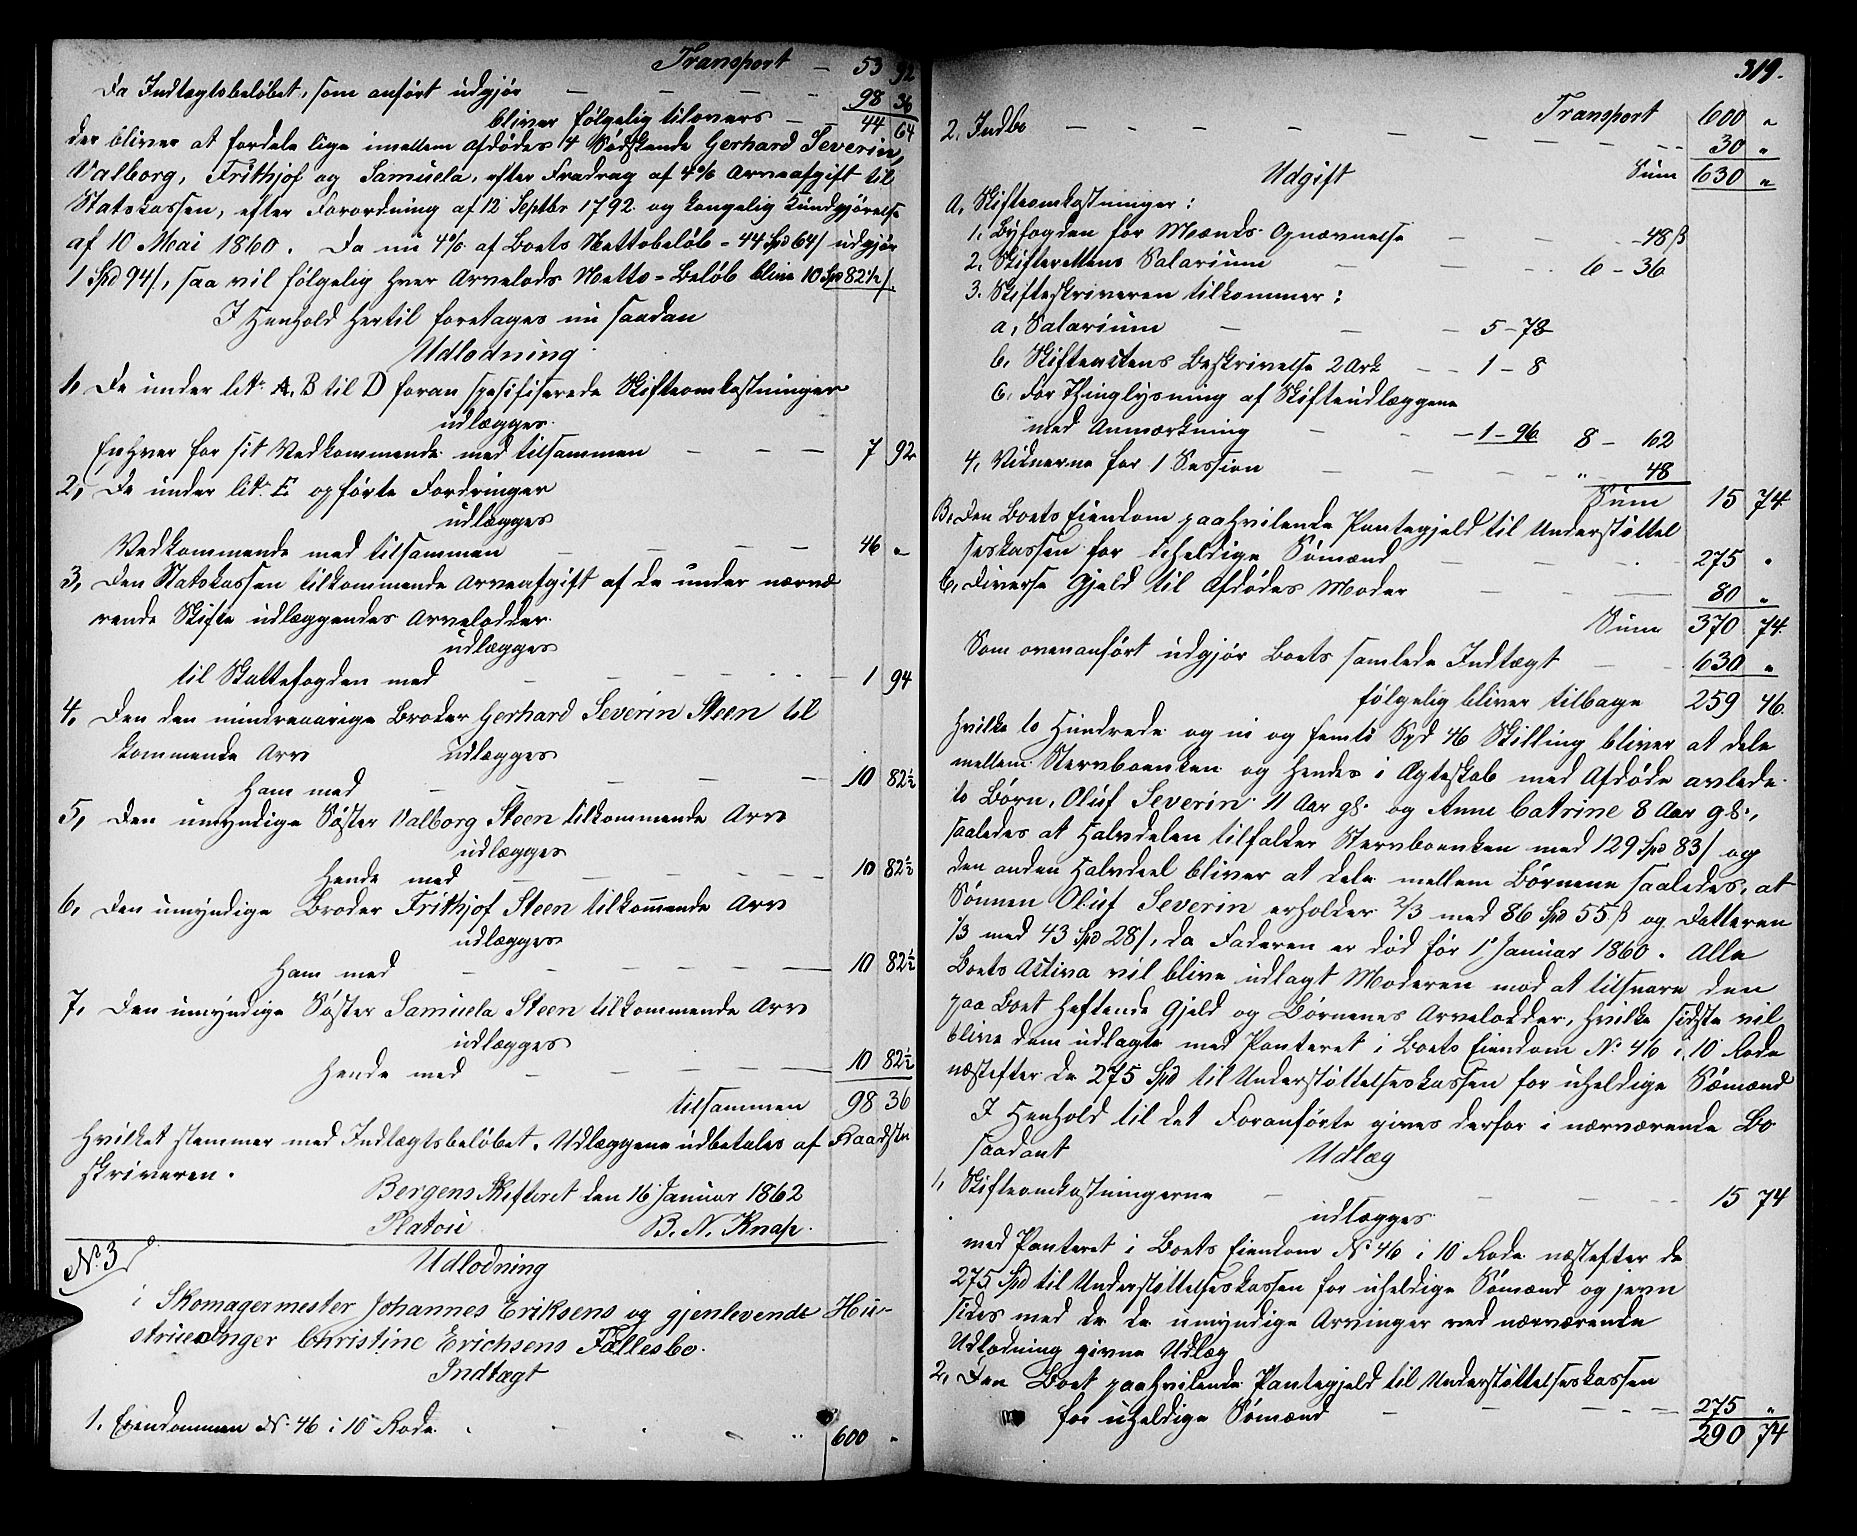 Transport – 53 92
Da Indtægtsbeløbet, som anført udgjør – – – – 98 36
bliver følgelig tilovers – – 44 64
der bliver at fordele lige imellem afdødes 4 Sødskende Gerhard Severin,
Valborg, Frithjof og Samuela, efter Fradrag af 4% Arveafgift til
Statskassen, efter Forordning af 12 Septbr 1792 og kongelig Kundgjørelse
af 10 Mai 1860. Da nu 4% af Boets Nettobeløb = 44 Spd 64 ß udgjør
1 Spd 94 ß, saa vil følgelig hver Arvelods Netto-Beløb blive 10 Spd 82½ ß.
I Henhold hertil foretages nu saadan
Udlodning
1, De under litr A, B til D foran spesifiserede Skifteomkostninger
udlægges
Enhver for sit Vedkommende med tilsammen – – – 7 92
2, De under litr E opførte Fordringer
udlægges
Vedkommende med tilsammen – – – – 46 "
3, Den Statskassen tilkommende Arveafgift af de under nærvæ
rende Skifte udlæggendes Arvelodder
udlægges
til Skattefogden med – – – – 1 94
4, Den den mindreaarige Broder Gerhard Severin Steen til
kommende Arv udlægges
Ham med – – – – 10 82½
5, Den umyndige Søster Valborg Steen tilkommende Arv
udlægges
Hende med – – – – 10 82½
6, Den umyndige Broder Frithjof Steen tilkommende Arv
udlægges
Ham med – – – – 10 82½
7, Den umyndige Søster Samuela Steen tilkommende Arv
udlægges
Hende med – – – – 10 82½
tilsammen 98 36
Hvilket stemmer med Indtægtsbeløbet. Udlæggene udbetales af Raadstu
skriveren.
Bergens Skifteret den 16 Januar 1862
Platou B. N. Knap.
No 3
Udlodning
i Skomagermester Johannes Eriksens og gjenlevende Hu-
strue Inger Christine Erichsens Fællesbo.
Indtægt
1, Eiendommen No 46 i 10 Rode 600 "
319.
Transport 600 "
2, Indbo – – – – – 30 "
Sum 630 "
Udgift
A, Skifteomkostninger:
1, Byfogden for Mænds Opnævnelse – – – 48 ß
2, Skifterettens Salarium – – – 6 – 36
3. Skifteskriveren tilkommer:
a, Salarium – – – 5–78
b, Skifteaktens Beskrivelse 2 Ark – – 1 – 8
c, For Thinglysning af Skifteudlæggene
med Anmærkning – – – 1–96 8 – 62
4, Vidnerne for 1 Session – – – " – 48
Sum 15 74
B, Den Boets Eiendom paahvilende Pantegjeld til Understøttel
seskassen for uheldige Sømænd – – – 275 "
C, Diverse Gjeld til Afdødes Moder – – – 80 "
Sum 370 74
Som ovenanført udgjør Boets samlede Indtægt – – 630 "
følgelig bliver tilbage 259 46
Hvilke to Hundrede og ni og femti Spd 46 Skilling bliver at dele
mellem Stervboenken og hendes i Ægteskab med Afdøde avlede
to Børn, Oluf Severin 11 Aar gl. og Anne Catrine 8 Aar gl.,
saaledes at Halvdelen tilfalder Stervboenken med 129 Spd 83 ß og
den anden Halvdeel bliver at dele mellem Børnene saaledes, at
Sønnen Oluf Severin erholder 2/3 med 86 Spd 55 ß og Datteren
1/3 med 43 Spd 28 ß, da Faderen er død før 1 Januar 1860. Alle
Boets Activa vil blive udlagt Moderen mod at tilsvare den
paa Boet heftende Gjeld og Børnenes Arvelodder, hvilke sidste vil
blive dem udlagte med Panteret i Boets Eiendom No 46 i 10 Rode
næstefter de 275 Spd til Understøttelseskassen for uheldige Sømænd
I Henhold til det Foranførte gives derfor i nærværende Bo
saadant Udlæg
1, Skifteomkostningerne – – – 15 74
udlægges
med Panteret i Boets Eiendom No 46 i 10 Rode næstefter de
275 Spd til Understøttelseskassen for uheldige Sømænd og jevn
sides med de de umyndige Arvinger ved nærværende
Udlodning givne Udlæg
2, Den Boet paahvilende Pantegjeld til Understøttelseskassen
for uheldige Sømænd – – – – 275 "
290 74